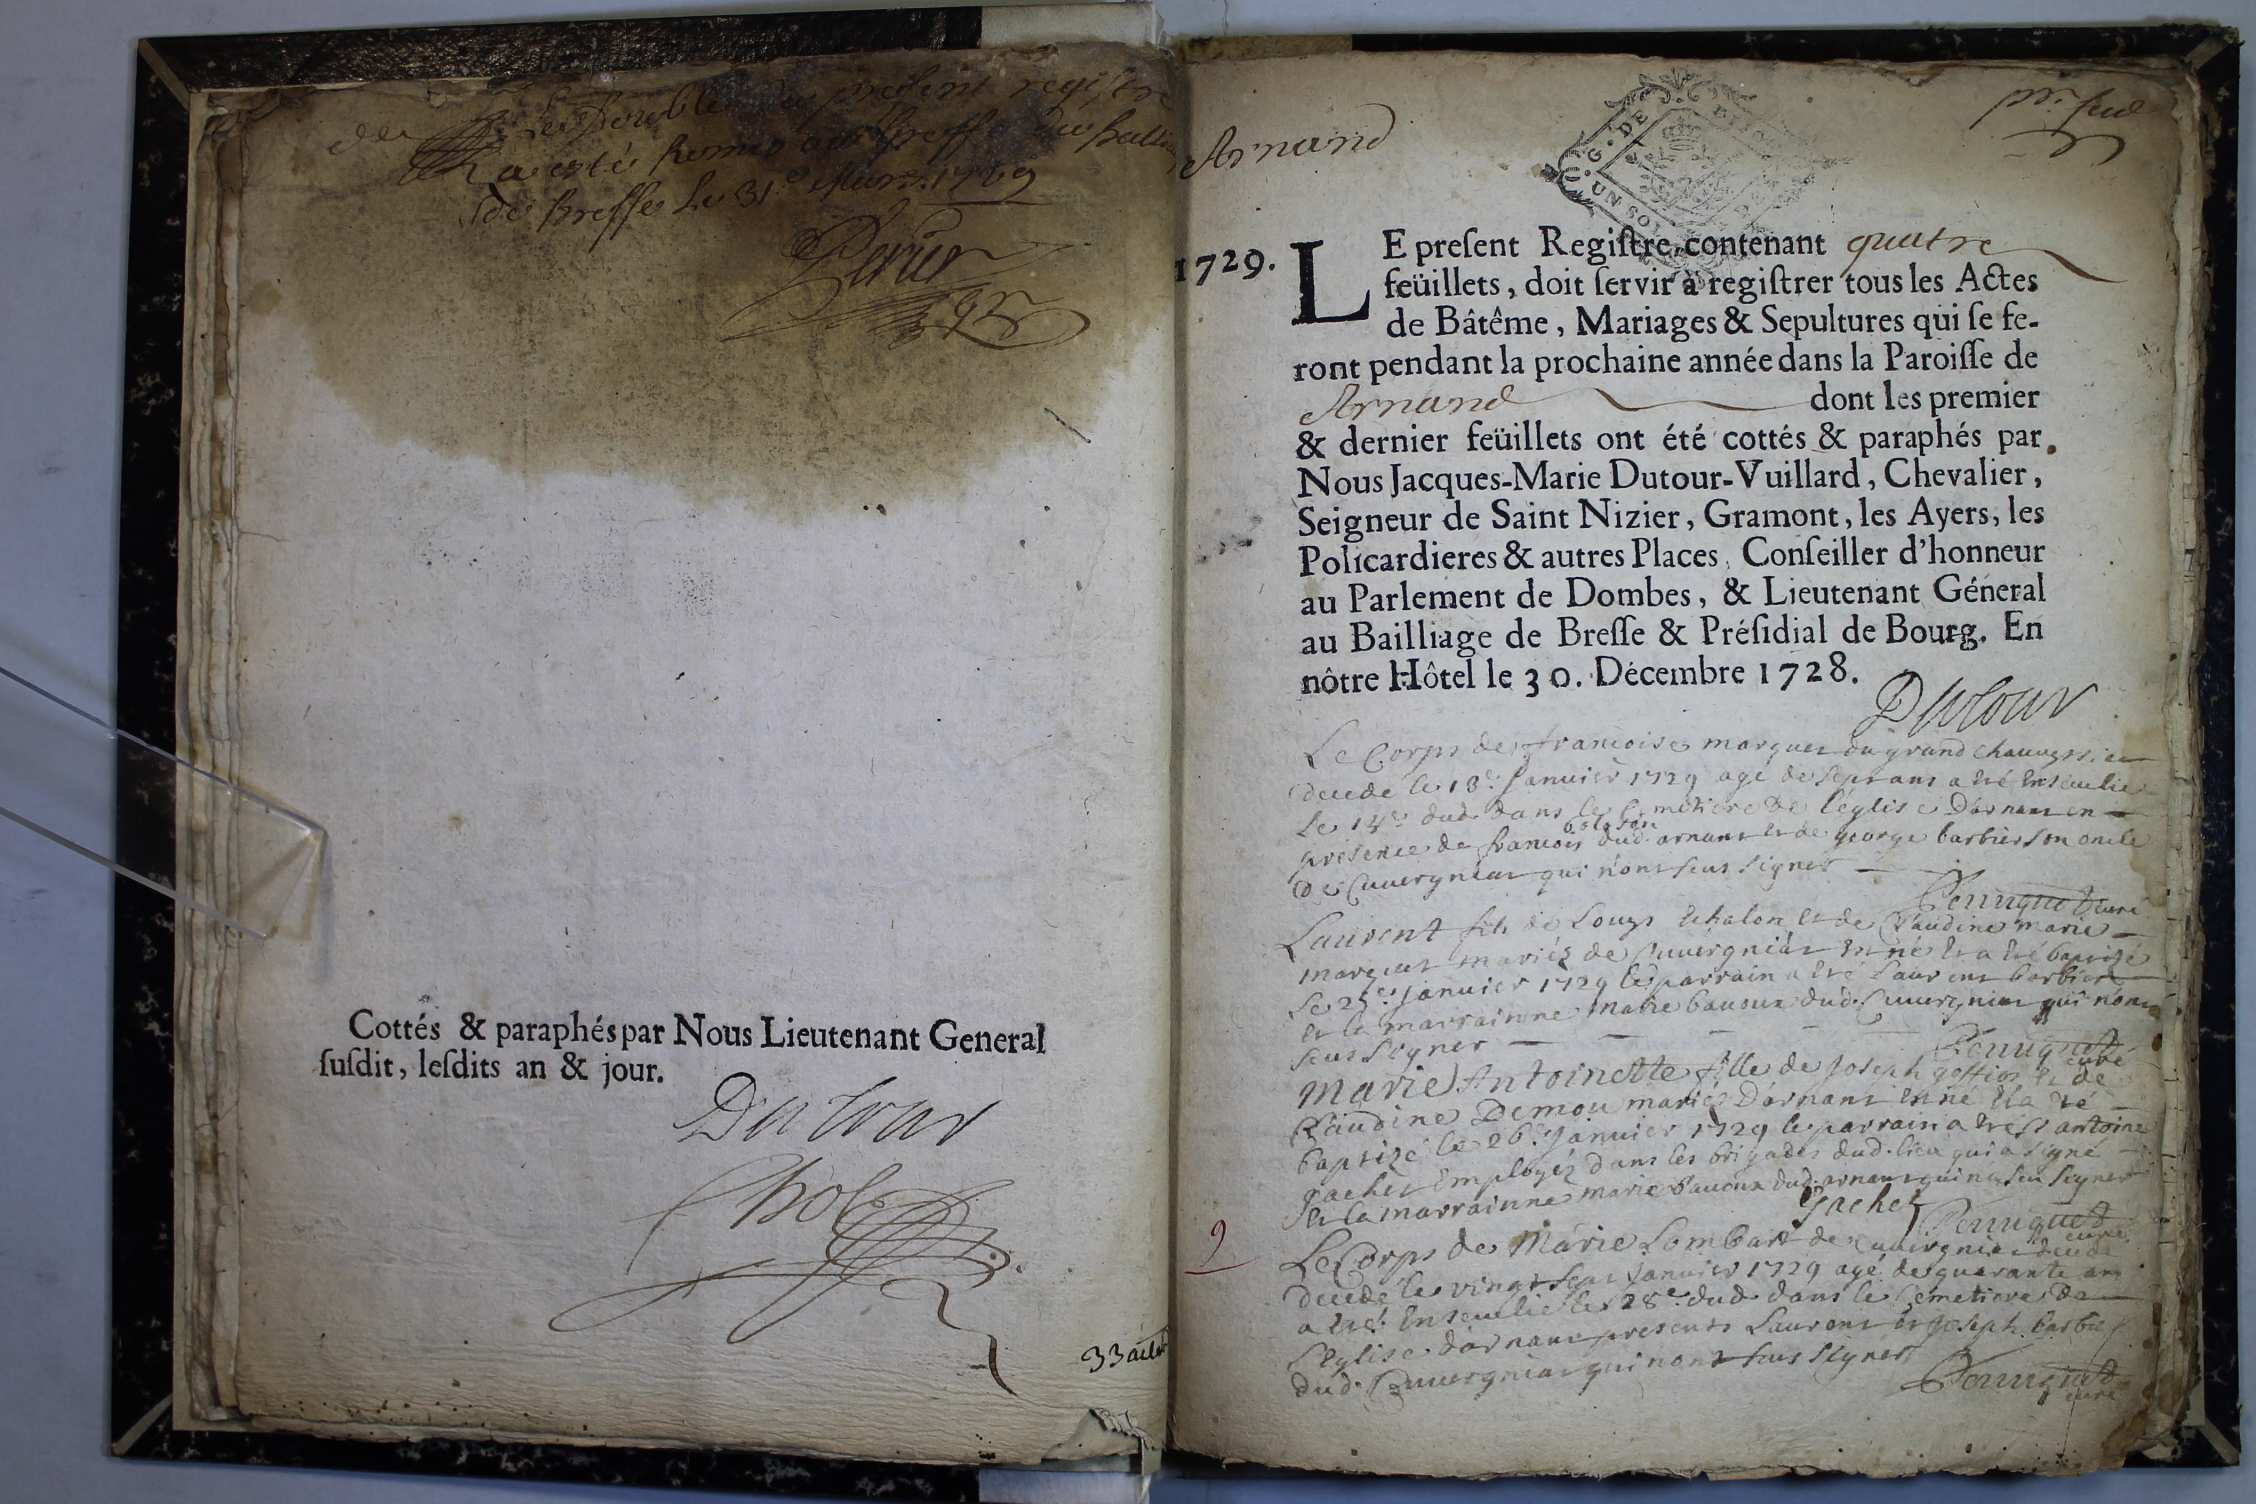 Le Double du present registre
a esté Remis au Greffe du Balliage
de Bresse Le 31e Mars 1729
Cottés & paraphés par Nous Lieutenant General
ſuſdit, leſdits an & jour.
Dutour
33 actes
Arnand
G. DE
UN SOL
1729.
LE preſent Regiſtre, contenant quatre
feüillets, doit ſervir à regiſtrer tous les Actes
de Bâtême, Mariages & Sepultures qui ſe fe-
ront pendant la prochaine année dans la Paroiſſe de
Arnand dont les premier
& dernier feüillets ont été cottés & paraphés par
Nous Jacques-Marie Dutour-Vuillard, Chevalier,
Seigneur de Saint Nizier, Gramont, les Ayers, les
Policardieres & autres Places, Conſeiller d'honneur
au Parlement de Dombes, & Lieutenant Géneral
au Bailliage de Breſſe & Préſidial de Bourg. En
nôtre Hôtel le 30. Décembre 1728.
Dutour
Le Corps de francoise marquet du grand
decede le 13e Janvier 1729 agé de sept ans a eté Enseulie
Le 14e dud. dans le Cemetiere de l'église d'arnant en
présence de francois dud. arnant et de george barbier son oncle
de Cuuergniat qui n'ont seus signer
curé
Laurent fils de Louys Echalon et de Claudine marie
marquet mariéz de Cuuergniat est né et a eté baptizé
Le 25e Janvier 1729 le parrain a eté Laurent barbier
et la marrainne marie bauoux dud. Cuuergniat qui n'ont
seus signer
curé
Marie Antoinette fille de Joseph goffioz et de
Claudine Demou mariéz D'arnant est né et a eté
baptizé le 26e Janvier 1729 le parrain a eté Sr antoine
gachet Employéz dans les brigades dud. lieu qui a signé
et la marrainne marie bauoux dud. arnant qui n'a seu signer
gachet
curé
9
Le Corps de Marie Lombart de Cuuergniat
decedé le vingt sept Janvier 1729 agé de quarante ans
a eté Enseulie le 28e dud. dans le Cemetiere de
l'Eglise d'arnant presents Laurent et Joseph barbier
dud. Cuuergniat qui n'ont seus signer
curé